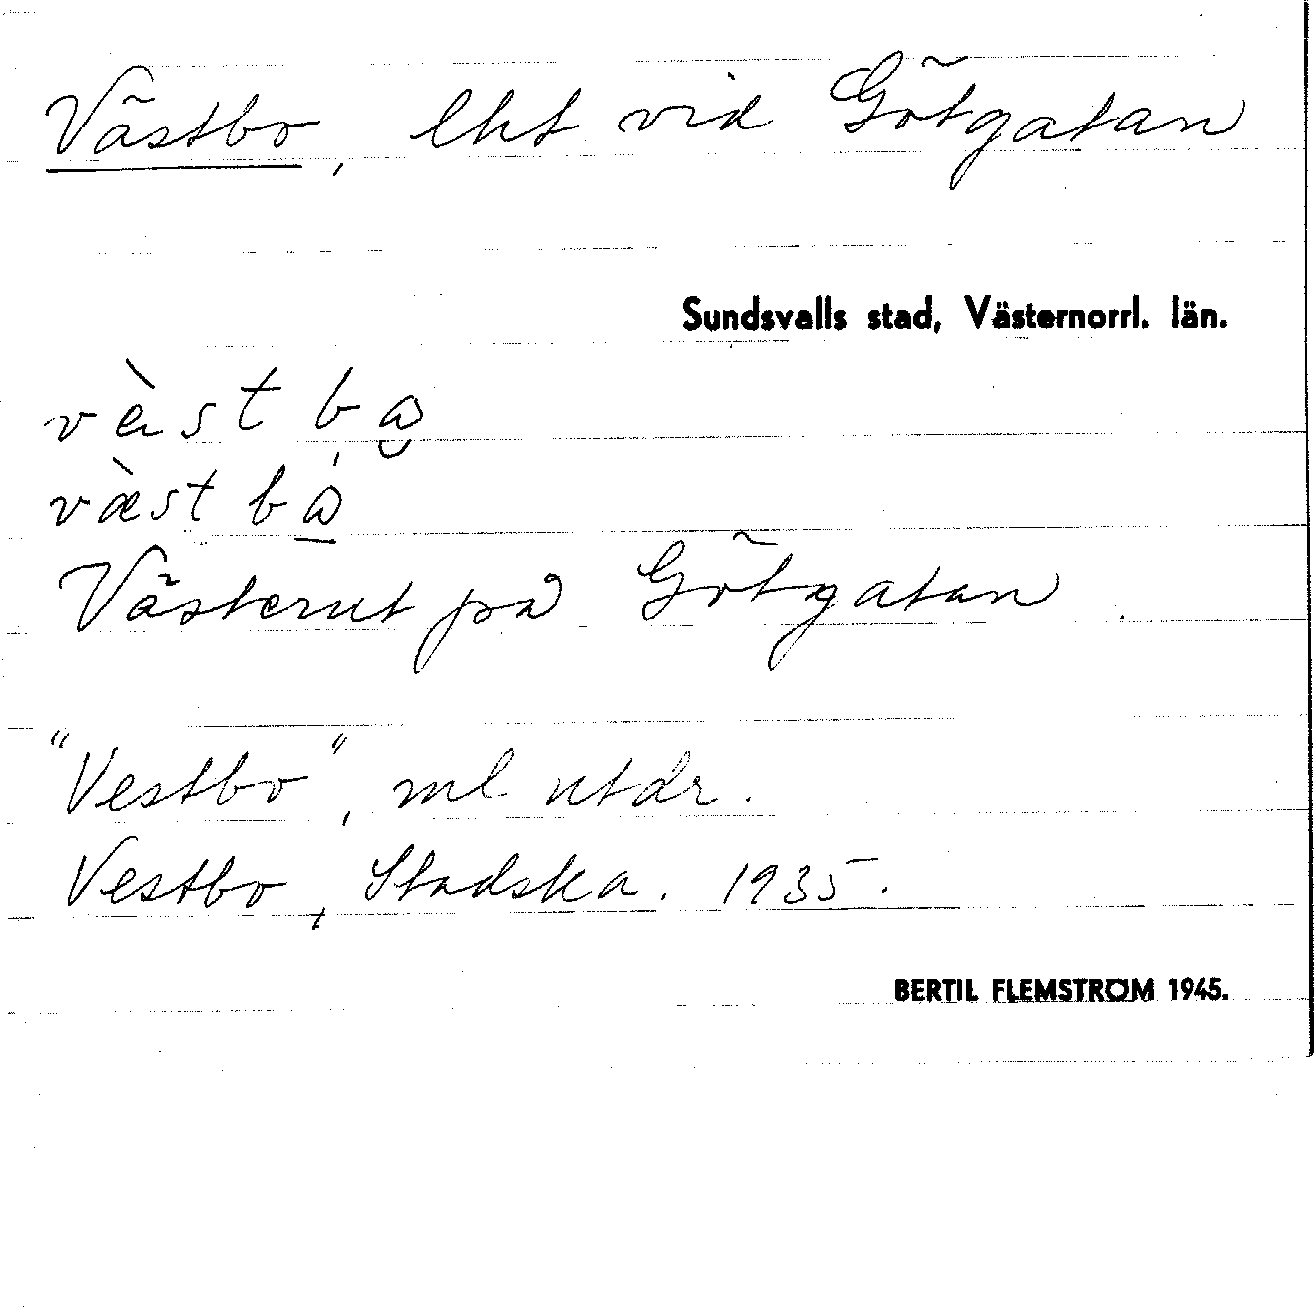 Västbo, lht vid Götgatan
Sundsvalls stad, Västernorrl. län.
Västerut på Götgatan.
"Vestbo", ml utdr.
Vestbo, Stadska. 1935.
BERTIL FLEMSTRÖM 1945.